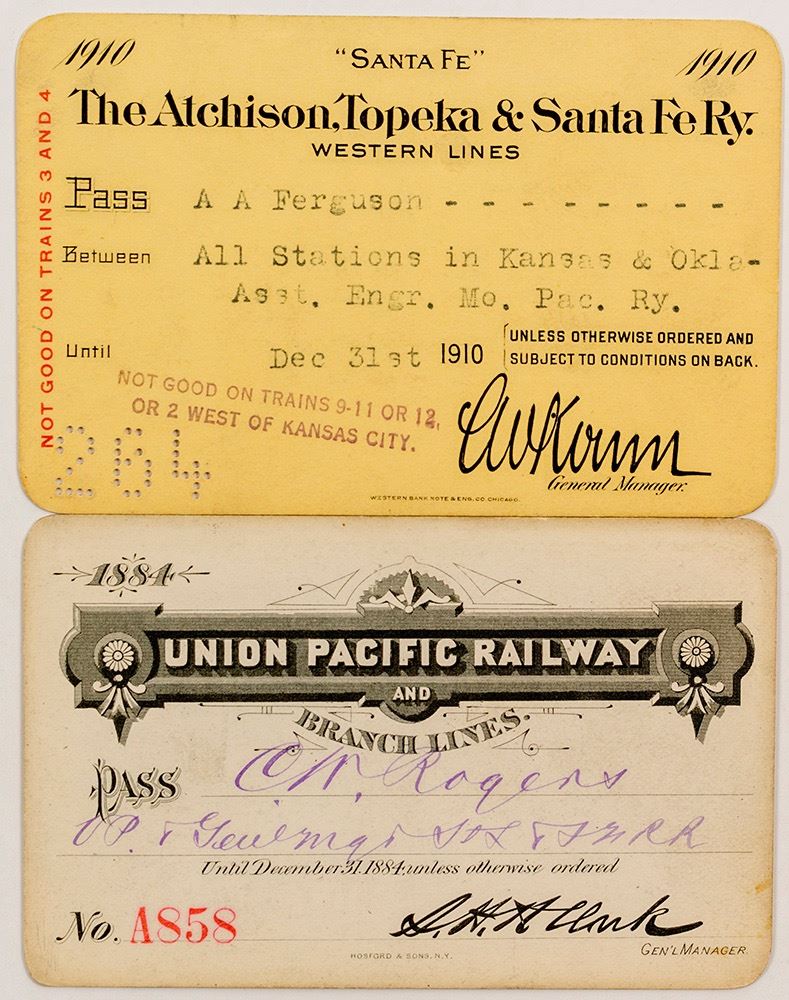 1910 "SANTA FE" 1910
The Atchison, Topeka & Santa Fe Ry.
WESTERN LINES
NOT GOOD ON TRAINS 3 AND 4
Pass A A Ferguson - - - - - - - - -
Between All Stations in Kansas & Okla-
Asst. Engr. Mo. Pac. Ry.
Until Dec 31st 1910 UNLESS OTHERWISE ORDERED AND
SUBJECT TO CONDITIONS ON BACK.
NOT GOOD ON TRAINS 9-11 OR 12,
OR 2 WEST OF KANSAS CITY.
264
General Manager.
WESTERN BANK NOTE & ENG. CO. CHICAGO.
1884
UNION PACIFIC RAILWAY
AND
BRANCH LINES.
PASS C W. Rogers
VP. & Genl Mngr StL & SFRR
Until December 31. 1884, unless otherwise ordered
No. A858 S. H. H. Clark
GEN'L MANAGER.
HOSFORD & SONS, N.Y.